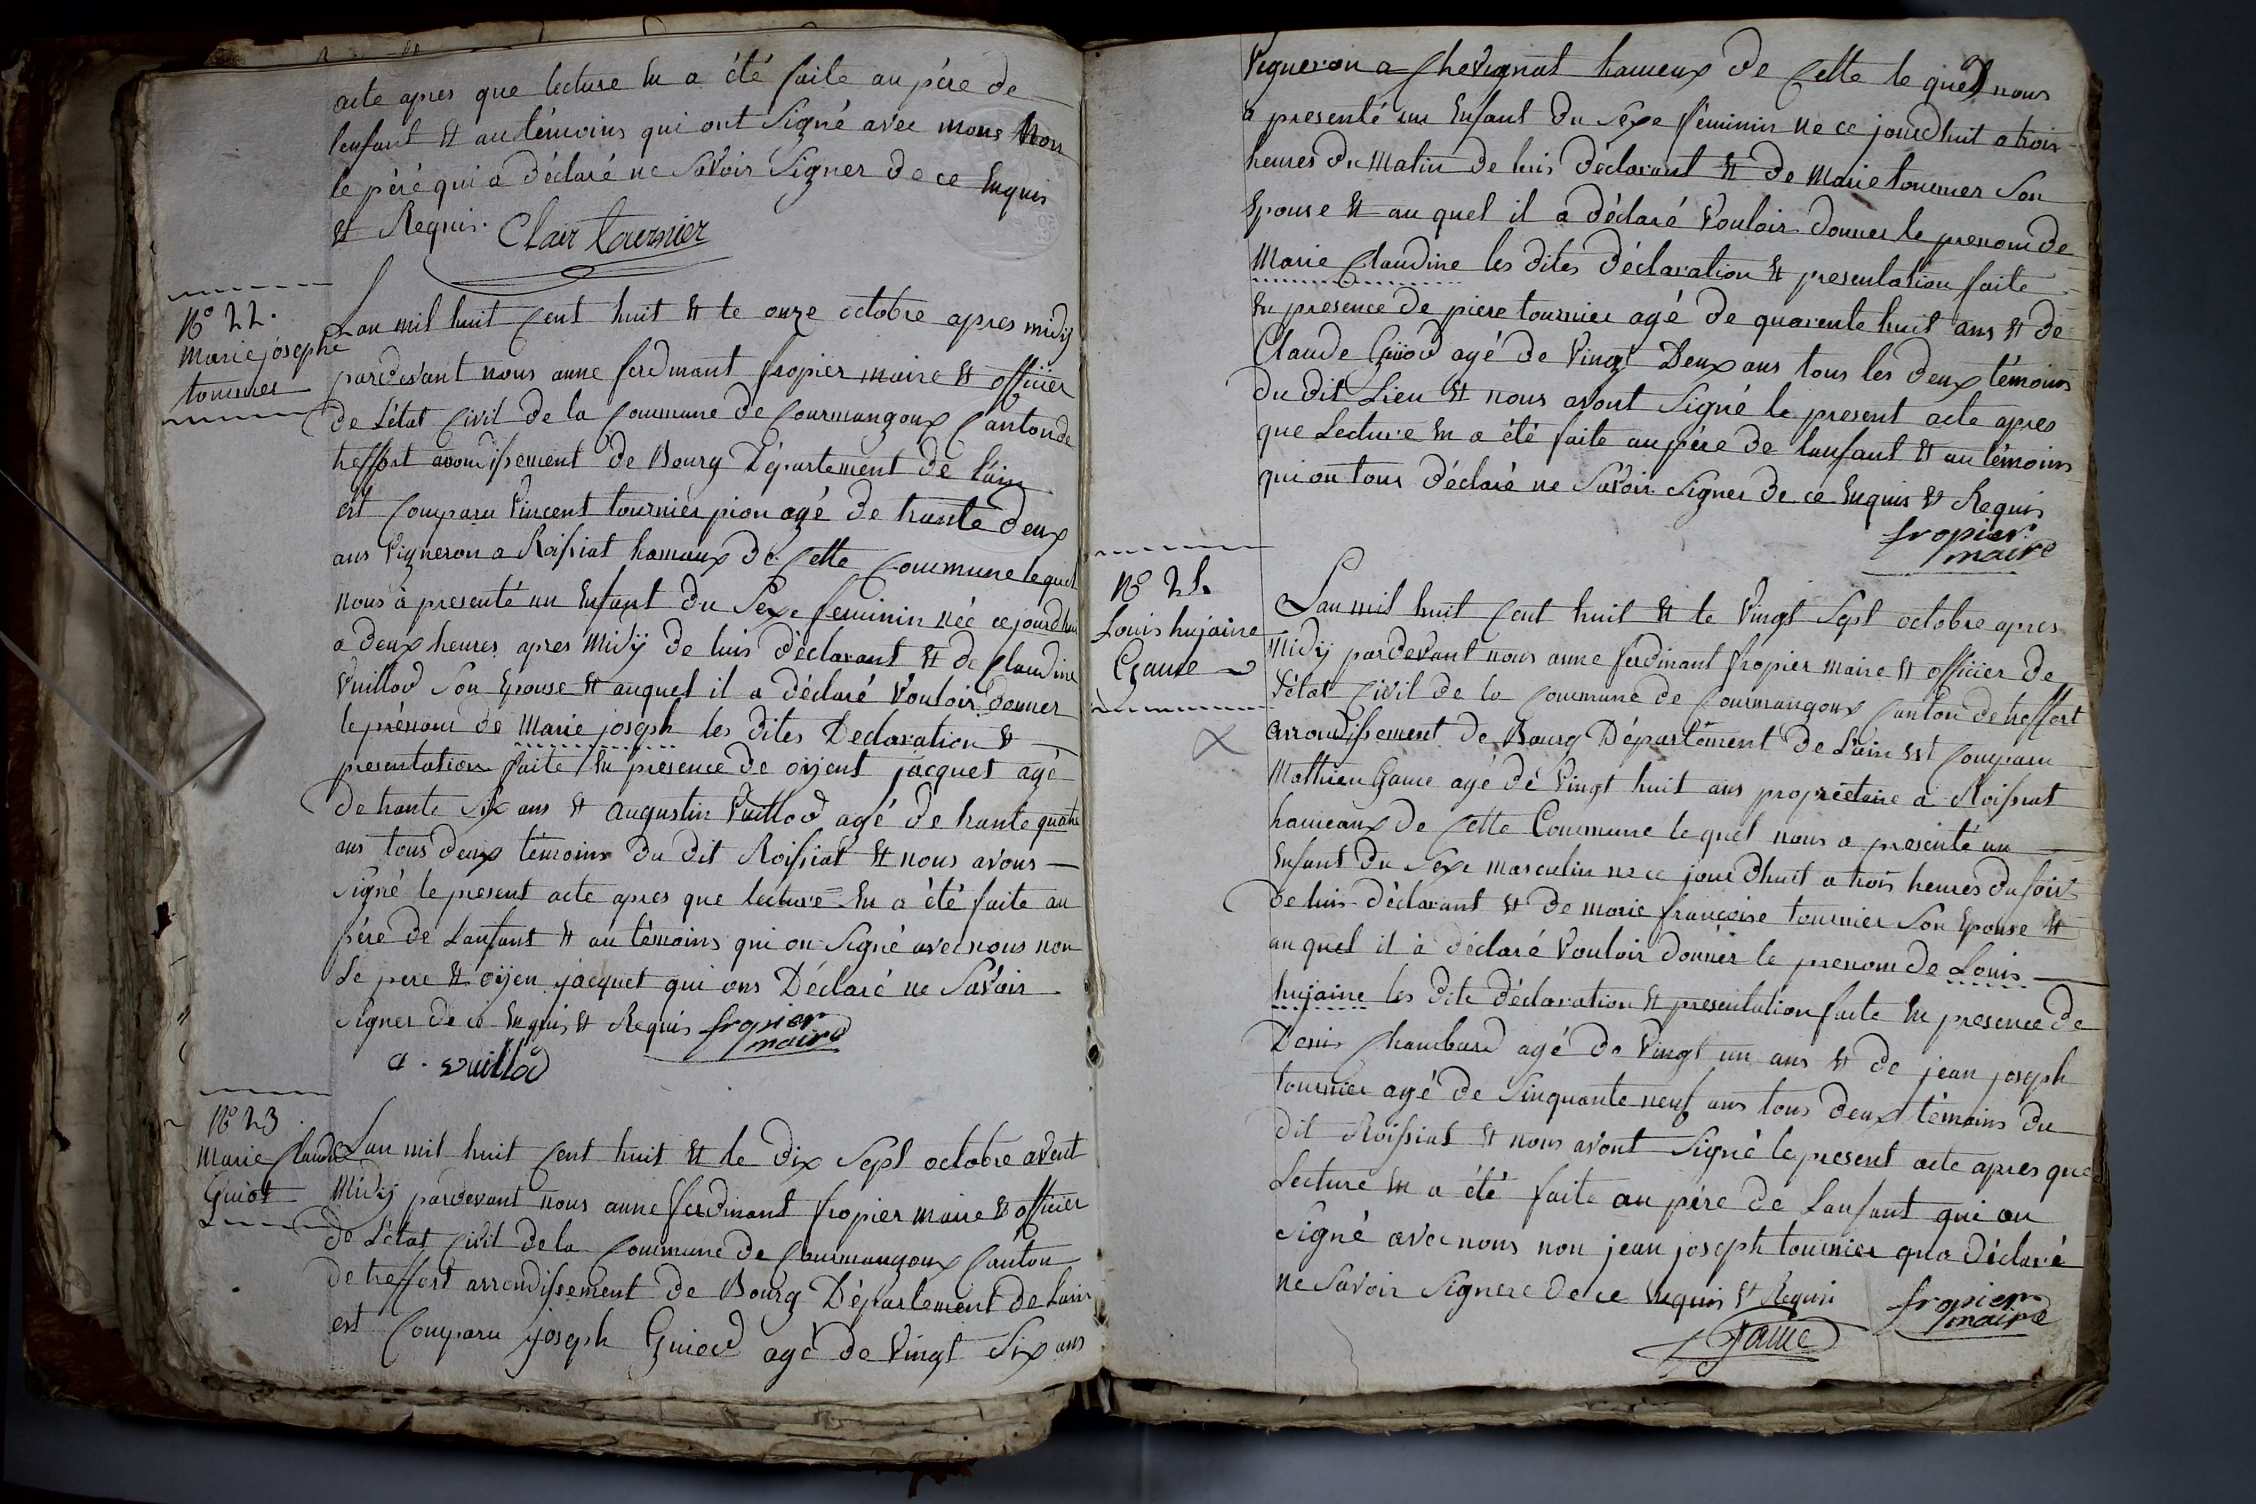 acte apres que lecture En a été faite au père de
lenfant Et au témoins qui ont Signé avec nous Non
le péré qui a déclaré ne Savoir Signer de ce Enquis
Et Requis. Clair tournier
N° 22.
Marie josephe
tournier
Lan mil huit Cent huit Et le onze octobre apres midÿ
pardevant nous anne ferdinant fropier maire Et officier
de L'état Civil de la Commune de Courmangoux Canton de
treffort arondissement de Bourg Département de L'ain
est Comparu Vincent tournier pion agé de trante deux
ans Vigneron a Roissiat hamaux de Cette Commune lequel
nous à presenté un Enfant du Sexe feminin née ce jourdhui
a deux heures apres Midÿ de luis déclarant Et de Claudine
Vuillod Son Epouse Et auquel il a déclaré Vouloir donner
le prénom de Marie joseph les dites Declaration Et
presentation faite En presence de oyent jacquet agé
de trante Six ans Et augustin Vuillod agé de trante quatre
ans tous deux témoins du dit Roissiat Et nous avons
Signé le present acte apres que lecture En a été faite au
père de Lanfant Et au témoins qui on Signé avec nous non
Le pere Et oyen jacquet qui ons Déclaré ne Savoir
Signer de ce Enquis Et Requis fropier
maire
a. vuillod
N° 23
Marie Claudi
Guiot
Lan mil huit Cent huit Et le Dix Sept octobre avent
Midÿ pardevant nous anne ferdinant fropier maire Et officier
de L'état Civil de la Commune de Courmangoux Canton
de treffort arrondissement de Bourg Département de Lain
est Comparu joseph Guiod agé de Vingt Six ans
Vigneron a Chevignat hameux de Cette le quel nous
a presenté un Enfant du Sexe féminin ne ce jourdhuit a trois
heures du Matin de luis déclarant Et de Marie tournier Son
Epouse Et au quel il a déclaré Vouloir donner le prenom de
Marie Claudine les dites déclaration Et presentation faite
En presence de piere tournier agé de quarente huit ans Et de
Claude Guiod agé de Vingt Deux ans tous les deux témoins
du dit Lieu Et nous avont Signé le present acte apres
que Lecture En a été faite au père de lanfant Et au témoins
qui on tous déclaré ne Savoir Signer de ce Enquis Et Requis
fropier
maire
N° 24
Louis hujaine
Game
Lan mil huit Cent huit Et le Vingt Sept octobre apres
Midÿ pardevant nous anne ferdinant fropier maire Et officier de
L'état Civil de la Commune de Courmangoux Canton de treffort
arrondissement de Bourg Département de L'ain Est Comparu
Mathieu Game agé de Vingt huit ans proprietaire a Roissiat
hameaux de Cette Commune le quel nous a presenté un
Enfant du Sexe masculin ne ce jourdhuit a trois heures du soir
de luis déclarant Et de marie francoise tournier Son Epouse Et
au quel il à déclaré Vouloir donner le prenom de Louis
hujaine les dite déclaration Et presentation faite En presence de
Denis Chambard agé de Vingt un ans Et de jean joseph
tournier agé de Sinquante neuf ans tous deux témoins du
dit Roissiat Et nous avont Signé le present acte apres que
Lecture En a été faite au père de Lanfant qui on
Signé avec nous non jean joseph tournier qua déclaré
ne Savoir Signere de ce Enquis Et Requis
fropier
maire
Game